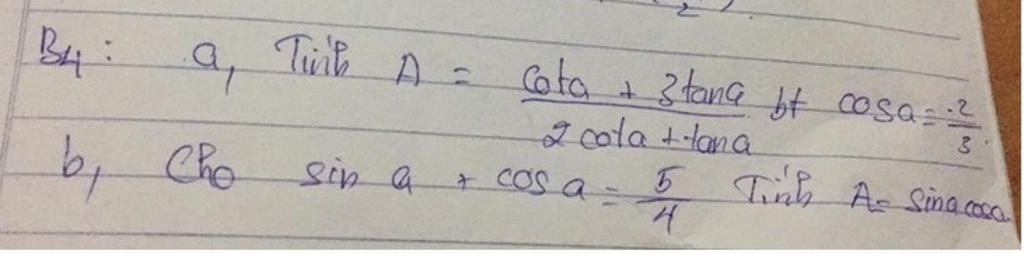 B4: a, Tính A = (cota + 3tana)/(2cota + tana) bt cosa = -2/3
b, Cho sin a + cos a = 5/4 Tính A = sina cosa